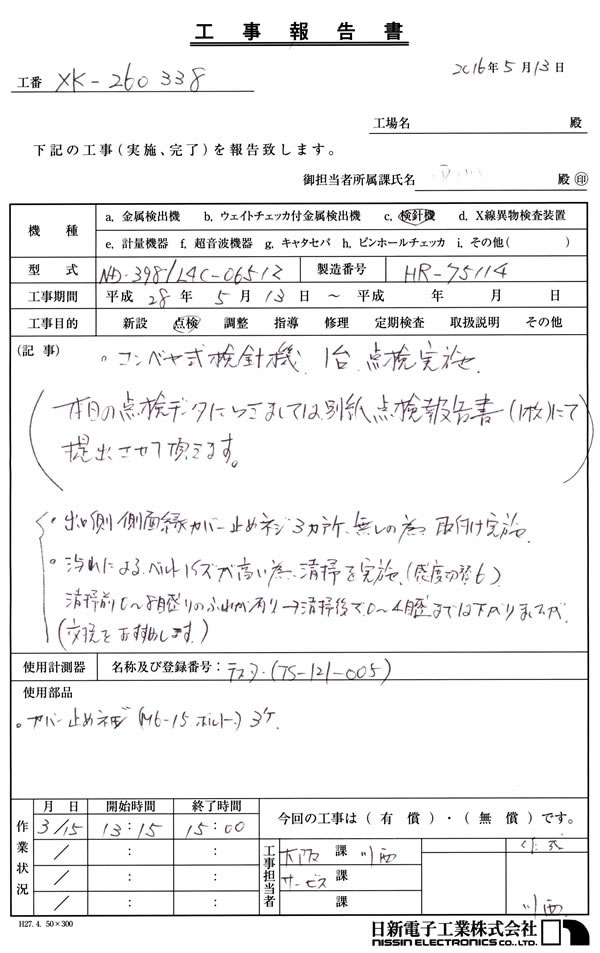 工事報告書
工番 XK-260338
2016年5月13日
工場名 殿
下記の工事(実施、完了)を報告致します。
御担当者所属課氏名 殿 ㊞
機種 a. 金属検出機 b. ウェイトチェッカ付金属検出機 c. 検針機 d. X線異物検査装置
e. 計量機器 f. 超音波機器 g. キャタセパ h. ピンホールチェッカ i. その他( )
型式 ND-398/L4C-06512 製造番号 HR-75114
工事期間 平成 28年 5月 13日 ~ 平成 年 月 日
工事目的 新設 点検 調整 指導 修理 定期検査 取扱説明 その他
(記事)
。コンベヤ式検針機 1台 点検実施.
(本日の点検データにつきましては別紙点検報告書(1枚)にて
提出させて頂きます。)
・出口側側面緑カバー止めネジ3カ所、無しの為 取付け実施
。汚れによるベルトノイズが高い為、清掃を実施.(感度切替6)
清掃前0〜8目盛りのふれが有り→清掃後で0〜4目盛までは下がりましたが
(交換をおすすめします)
使用計測器 名称及び登録番号:テスター(TS-121-005)
使用部品
。カバー止めネジ(M6-15 ボルト) 3ケ
作業状況 月日 開始時間 終了時間
3/15 13:15 15:00
/ : :
/ : :
/ : :
今回の工事は(有償)・(無償)です。
工事担当者
大阪 課 川西
サービス 課
課
川西
H27. 4. 50×300
日新電子工業株式会社
NISSIN ELECTRONICS CO., LTD.